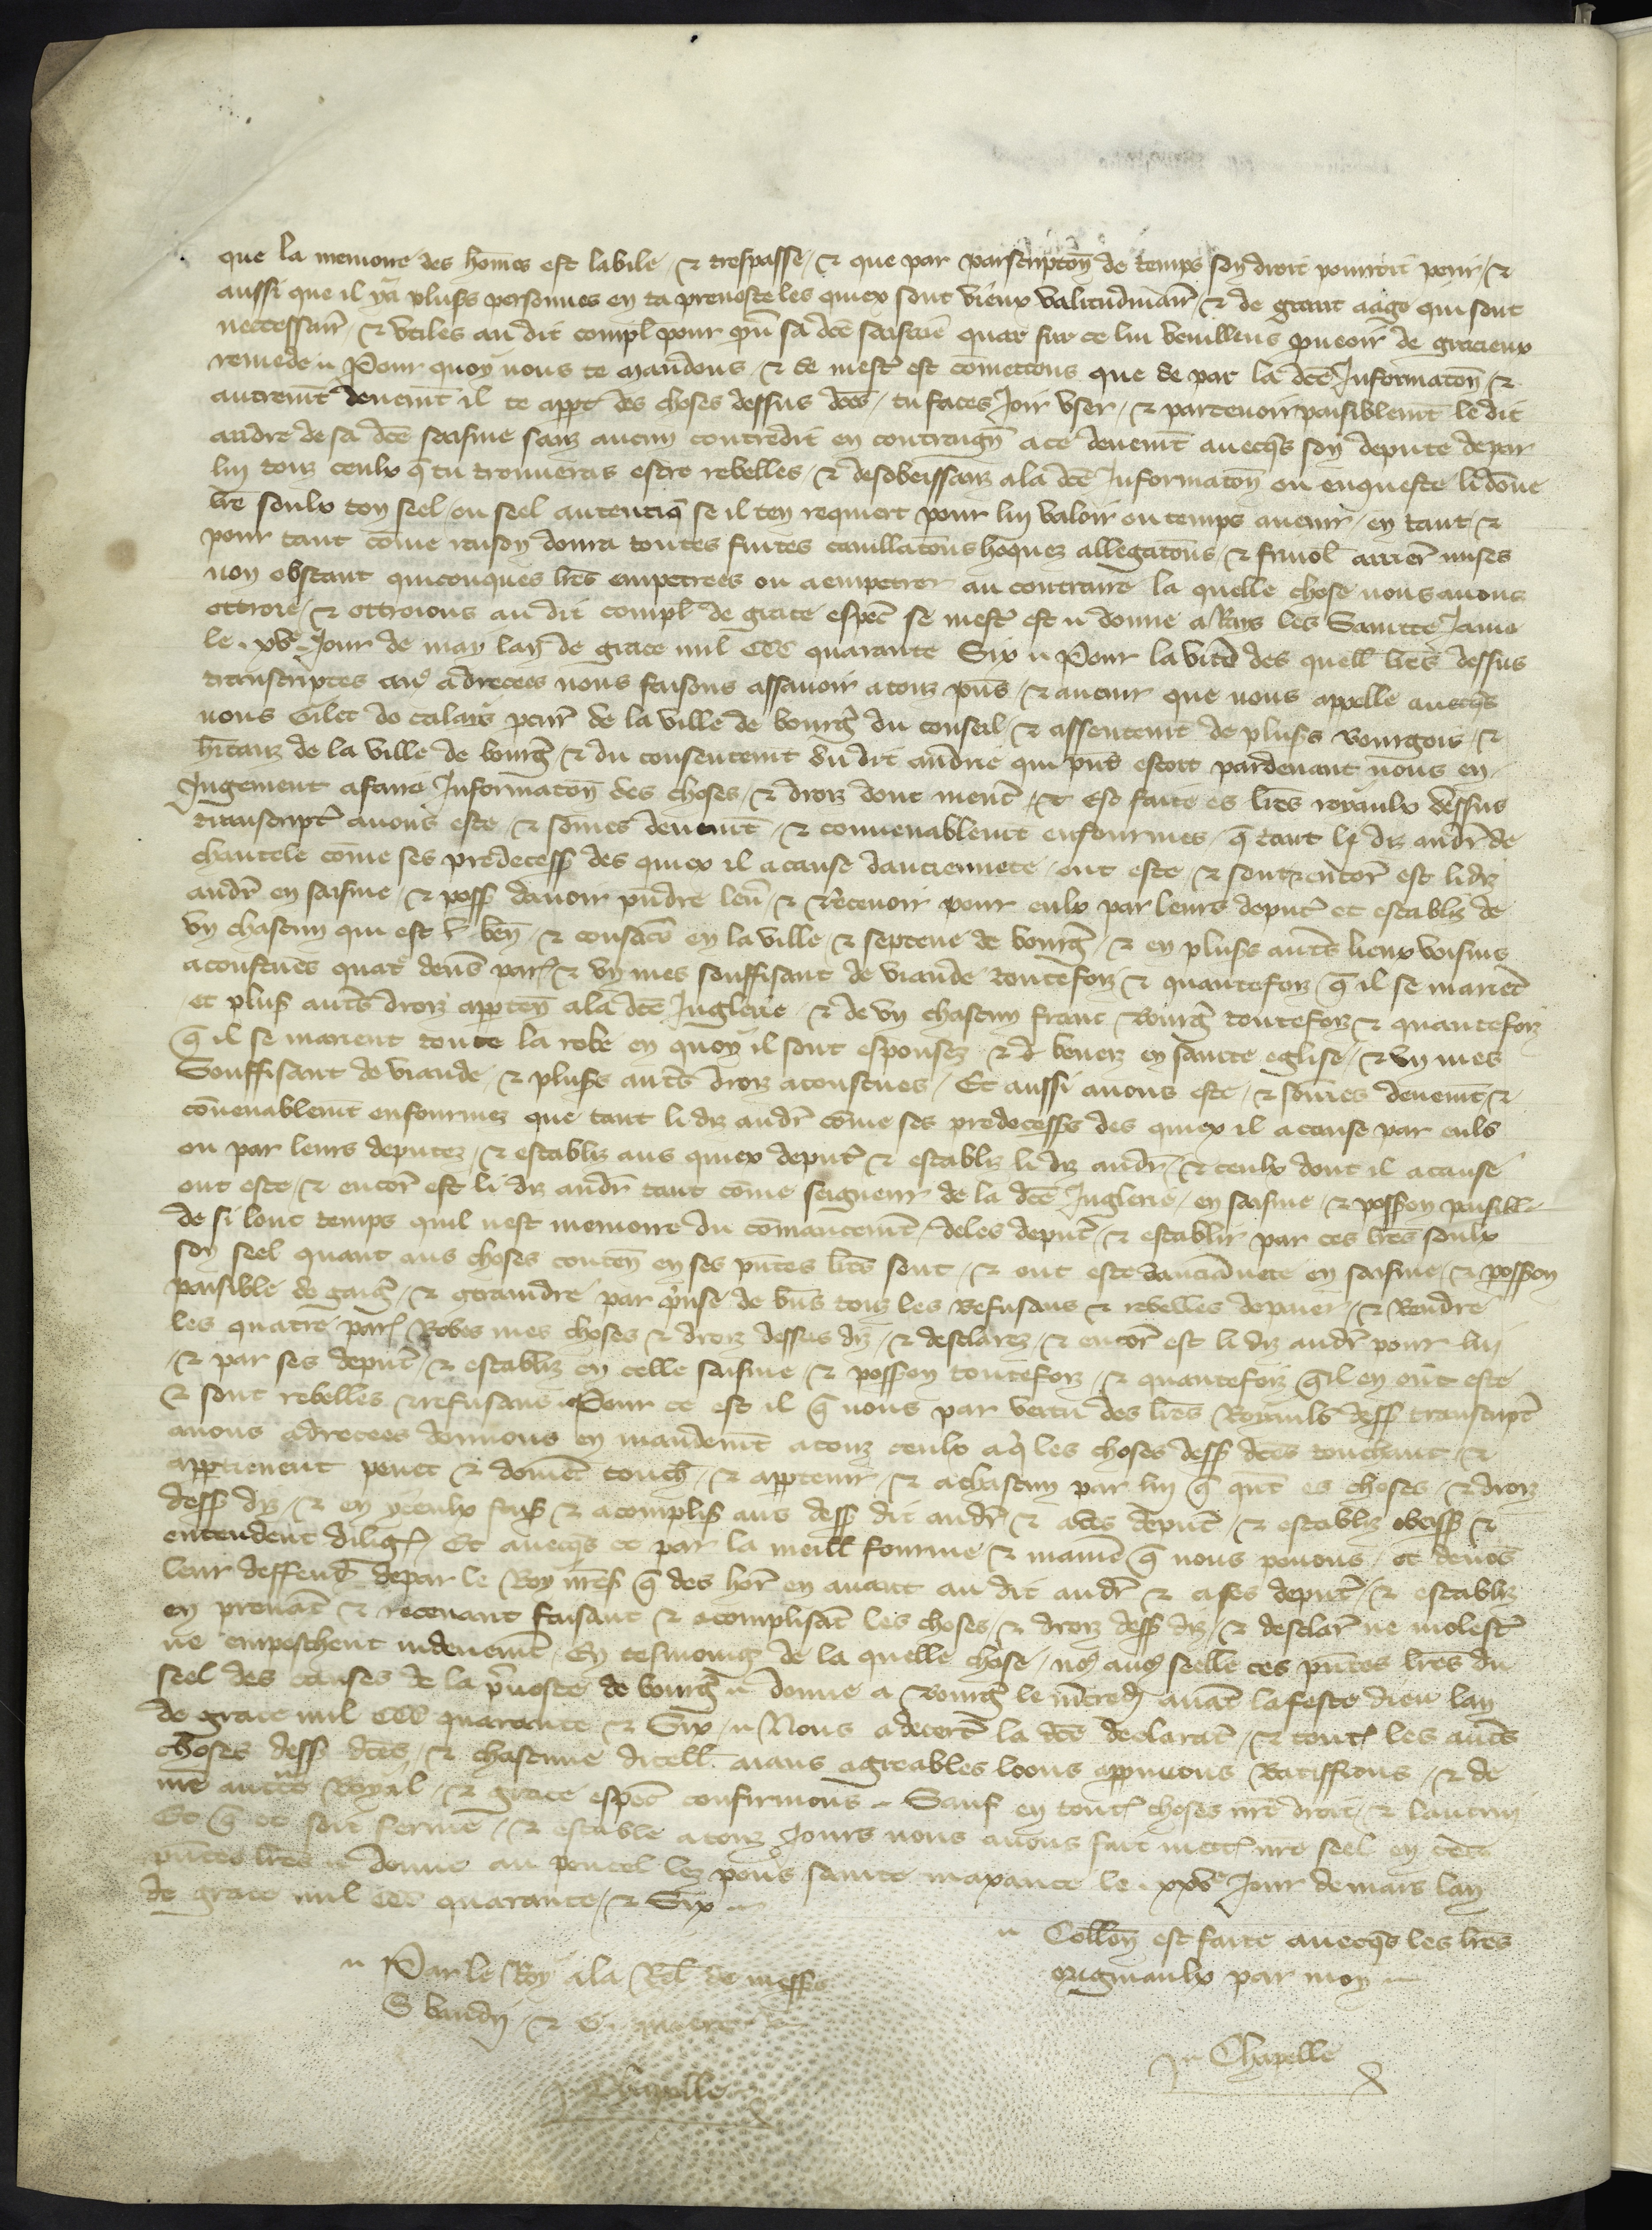 que la memoire des hom̄es est labile / ⁊ trespasse / ⁊ que par parscriptōn de temps son droit pourroit perir / ⁊
aussi que il y a plus̄s personnes en ta prevoste les quiex sont vieux valitudinair̄ / ⁊ de grant aage qui sont
neccessair̄ / ⁊ utiles au dit compl̄ pour pr̄u sa dc̄e saisine quar sur ce lui veuillens p̄rveoir de gracieux
remede ⹀ Pour quoy nous te mandons / ⁊ se mestr̄ est cōmettons que se par la dc̄e Informatōn / ⁊
autremt̄ deuemt̄ il te appt̄ des choses dessus dc̄es / tu faces Joir user / ⁊ partenoir paisiblemt̄ le dit
andre de sa dc̄e saisine sanz aucun contredit en contreugn̄ a ce deuemt̄ avecq̄s son depute de par
lui touz ceulx q̄ tu trouveras estre rebelles / ⁊ desobeissanz a la dc̄e Informatōn ou enqueste li dōne
lr̄e soulx ton seel / ou seel autentiq̄ se il ten requiert pour lui valoir ou temps avenir / en tant / ⁊
pour tant cōme raison donra toutes fuites cavillatōns hoquez allegatōns / ⁊ frivol̄ arrier̄ mises
non obstant quicouques lr̄es empetrees ou a empetrer au contraire la quelle chose nous avons
ottroie / ⁊ ottroions au dit compl̄ de grace espec̄ se mestr̄ est ⹀ donne a Rūs les Saincte Jame
le .xv̄e. Jour de may lan de grace mil CCC quarante Six ⹀ Pour la v̄tu des quell̄ lr̄es dessus
transcriptes a nō adrecees nous faisons assavoir a touz p̄ns / ⁊ avenir que nous appelle avecq̄s
nous Gilet de calais peur̄ de la ville de bourḡ du conseil / ⁊ assentemt̄ de plus̄s Bourgois / ⁊
hīTanz de la ville de bourḡ / ⁊ du consentemt̄ dū dit andrie qui p̄ns estoit pardevant nous en
Jugement a faire Informatōn des choses / ⁊ droiz dont mencō / ⁊ Est faite es lr̄es royaulx dessus
transcriptē avons este / ⁊ som̄es deuemt̄ / ⁊ convenablemt̄ enfourmes / q̄ tant li diz andr̄ de
chantele cōme ses predecess̄ des quiex il a cause danciennete / ont este / ⁊ sont ⁊ encor̄ est li diz
andr̄ en saisine / ⁊ poss̄ davoir pn̄dre lev̄ / ⁊ Recevoir pour eulx par leurs deput̄ et establiz de
un chascun qui est ben̄ / ⁊ consacr̄ en la ville / ⁊ septene de bourḡ / ⁊ en plus̄s aut̄s lieux voisins
acoustum̄es quat̄ dens̄ par̄ / ⁊ un mes souffisant de viande toutefoiz / ⁊ quantefoiz q̄ il se mariēt
et plus̄s aut̄s droiz apparten̄ a la dc̄e Juglerie / ⁊ de un chascun franc Bourḡ toutefoiz ⁊ quantefoiz
q̄ il se marient toute la robe en quoy il sont espousez ⁊ beneiz en saincte eglise / ⁊ un mes
Souffisant de viande / ⁊ plus̄s aut̄s droiz acoustumes / Et aussi avons este / ⁊ som̄es deuemt̄ ⁊
cōvenablemt̄ enfourmez que tant li diz andr̄ cōme ses predecess̄s des quiex il a cause par eulx
ou par leurs deputez / ⁊ establiz aus quiex deput̄ ⁊ establiz li diz andr̄ / ⁊ ceulx dont il a cause
ont este / ⁊ encor̄ est li diz andr̄ tant cōme seigneur de la dc̄e Juglerie / en saisine / ⁊ poss̄on paisible
de si lonc temps quil nest memoire du cōmancemt̄ / deles deput̄ / ⁊ establir par ces lr̄es soulx
son seel quant aus choses conten̄ en ses pn̄tes lr̄es sont / ⁊ ont este danciānete en saisine / ⁊ poss̄on
paisible de gaiḡ / ⁊ contraindre par p̄rise de b̄ns touz les Refusans ⁊ rebelles de paier / ⁊ Rendre
les quatre par̄ Robes mes choses ⁊ droiz dessus diz / ⁊ desclarez / ⁊ encor̄ est li diz andr̄ pour lui
/ ⁊ par ses deput̄ / ⁊ establiz en celle saisine / ⁊ poss̄on toutefoiz / ⁊ quantefoiz q̄ il en ont este
⁊ sont rebelles ⁊ refusans ⹀ Pour ce est il q̄ nous par vertu des lr̄es Royaulx dess̄ transcript̄
a nous adrecees donnons en mandemt̄ a touz ceulx a q̄ les choses dess̄ dc̄es touchent ⁊
appartienent pevēt ⁊ doivēt touch̄ / ⁊ appartenir / ⁊ a chascun par lui q̄ qn̄t es choses / ⁊ droiz
dess̄ diz / ⁊ en yceulx faiz̄ ⁊ acomplir̄ aus dess̄ dit andr̄ ⁊ a des deput̄ / ⁊ establiz obeiss̄ ⁊
entendent diliḡ / Et avecq̄s ce par la meill̄ fourme ⁊ manier̄ q̄ nous povons / et devōs
leur deffend̄ de par le Roy nr̄es̄ q̄ des hor̄ en avant au dit andr̄ ⁊ a ses deput̄ / ⁊ establiz
en prenāt / ⁊ recevant faisant ⁊ acomplisāt les choses / ⁊ droiz dess̄ diz / ⁊ desclar̄ ne molest̄
ne empeschent indeuemt̄ / En tesmoing de la quelle chose / no9 avo9 seelle ces pn̄tes lr̄es du
seel des causes de la p̄voste de bourḡ ⹀ donne a Bourḡ le m̄credi avāt la feste dieu lan
de grace mil CCC quarante ⁊ Six ⹀ Nous a decert̄ la dc̄e declarat̄ / ⁊ tout̄ les aut̄s
choses dess̄ dc̄es / ⁊ chascune dicell̄ aians agreables loons approuvons Ratiffions / ⁊ de
nr̄e auctt̄e Royal / ⁊ grace espec̄ confirmons ⹀ Sauf en tout̄ choses nr̄e droit / ⁊ lautrui
Et q̄ ce soit ferme / ⁊ estable a touz Jours nous avons fait mett̄ nr̄e seel en cēs
pn̄tes lr̄es ⹀ donne au poncel lez pons saincte maxance le .xxv̄e Jour de mars lan
de grace mil CCC quarante / ⁊ Six ⹀
⹀ Collōn est faite avecq̄s les lr̄es
originaulx par moy ⹀
⹀ Par le Roy a la Rel̄ de mess̄s
S baudri ⁊ G.
Ja Chapelle
Ja Chapelle